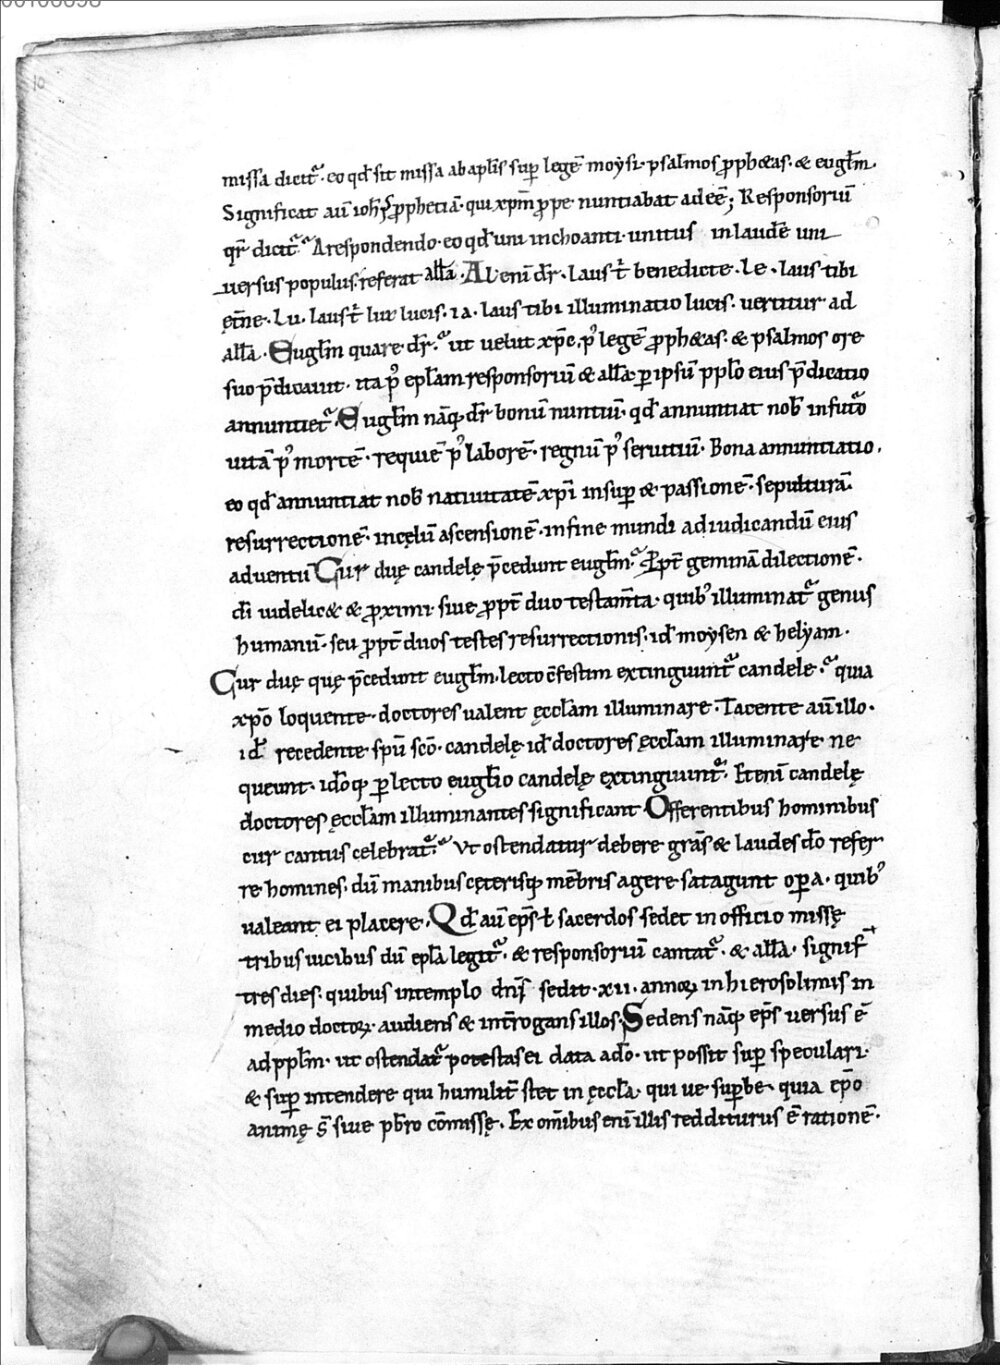 missa dicit᷑. eo qđ sit missa ab aplis sup legē moysi. psalmos pphetas. & eugłm.
Significat aū ioħs pphetiā. qui xpm ppe nuntiabat adeē; Responsoriū
qr̄ dicit᷑. A respondendo. eo qđ uni inchoanti. unitus in laudē uni
uersus populus referat alla. Al eni dr̄. laus t̄ benedicte. Le. laus tibi
et̄ne. Lu. laus t̄ lux lucis. ia. laus tibi illuminatio lucis. uertitur ad
alla. Eugłm quare dr̄. ut uelut xpc. p᷒ legē pphetas. & psalmos ore
suo p̄dicauit. ita p᷒ eplam responsoriū & alla p ipsū pplo eius p̄dicatio
annuntiet᷑. Eugłm nāq dr̄ bonū nuntiū. qđ annuntiat nob infuturo
uitā p᷒ mortē. requiē p᷒ laborē. regnū p᷒ seruitiū. Bona annuntiatio.
eo qđ annuntiat nob natiuitatē xpi insup & passionē. sepulturā.
resurrectionē. incęlū ascensionē. infine mundi ad iudicandū eius
aduentū. Cur duę candelę p̄cedunt eugłm. Ppt̄ geminā dilectionē.
di uidelic& & proximi. siue ppt̄ duo testam̄ta. quib᷒ illuminat᷑ genus
humanū. seu ppt̄ duos testes resurrectionis. id moysen & helyam.
Cur duę quę p̄cedunt eugłm. lecto cfestim extinguunt᷑ candele. quia
xpo loquente. doctores ualent ęcclam illuminare. Tacente aū illo.
id recedente spū sco. candelę id doctores ęcclam illuminare ne
queunt. idoq plecto euglio candelę extinguunt᷑. Eteni candelę
doctores ęcclam illuminantes significant. Offerentibus hominibus
cur cantus celebrat᷑. Vt ostendatur debere gras & laudes do refer
re homines. dū manibus cęterisq mēbris agere satagunt opa. quib᷒
ualeant ei placere. Qđ aū eps ł sacerdos sedet in officio missę
tribus uicibus dū epla legit᷑. & responsoriū cantat᷑. & alla. signif
tres dies. quibus intemplo dns sedit. xii. annoꝝ in hierosolimis in
medio doctoꝝ. audiens & int̄rogans illos. Sedens nāq eps uersus ē
ad pplm. ut ostendat᷑ potestas ei data ado. ut possit sup speculari.
& sup intendere qui humilit̄ stet in ęccla. qui ue supbe. quia epo
animę s̄ siue pbro cōmissę. Ex omibus eni illis redditurus ē rationē.